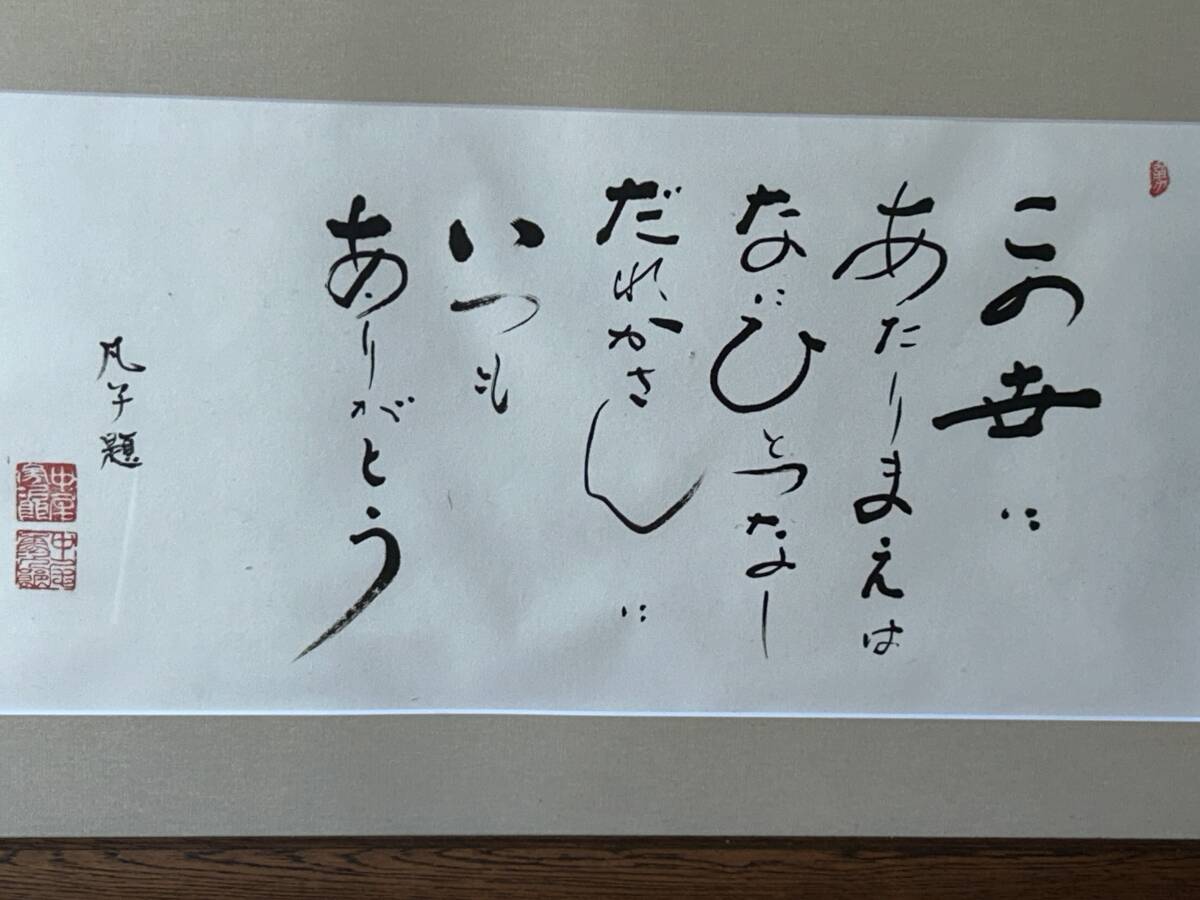 この世に
あたりまえは
なに ひとつなし
だれかさんに
いつも
ありがとう
凡子題